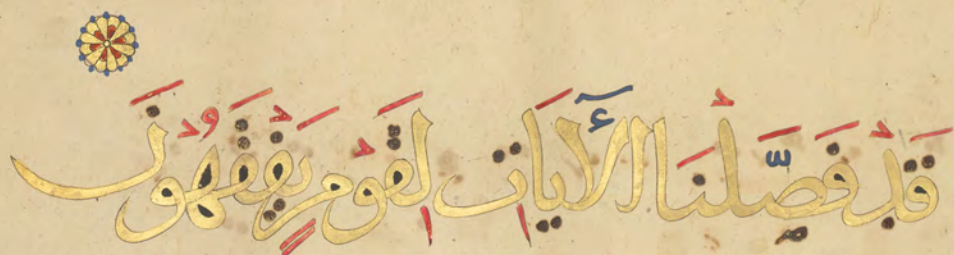 قَدْ فَصَّلْنَا الْآيَاتِ لِقَوْمٍ يَفْقَهُونَ